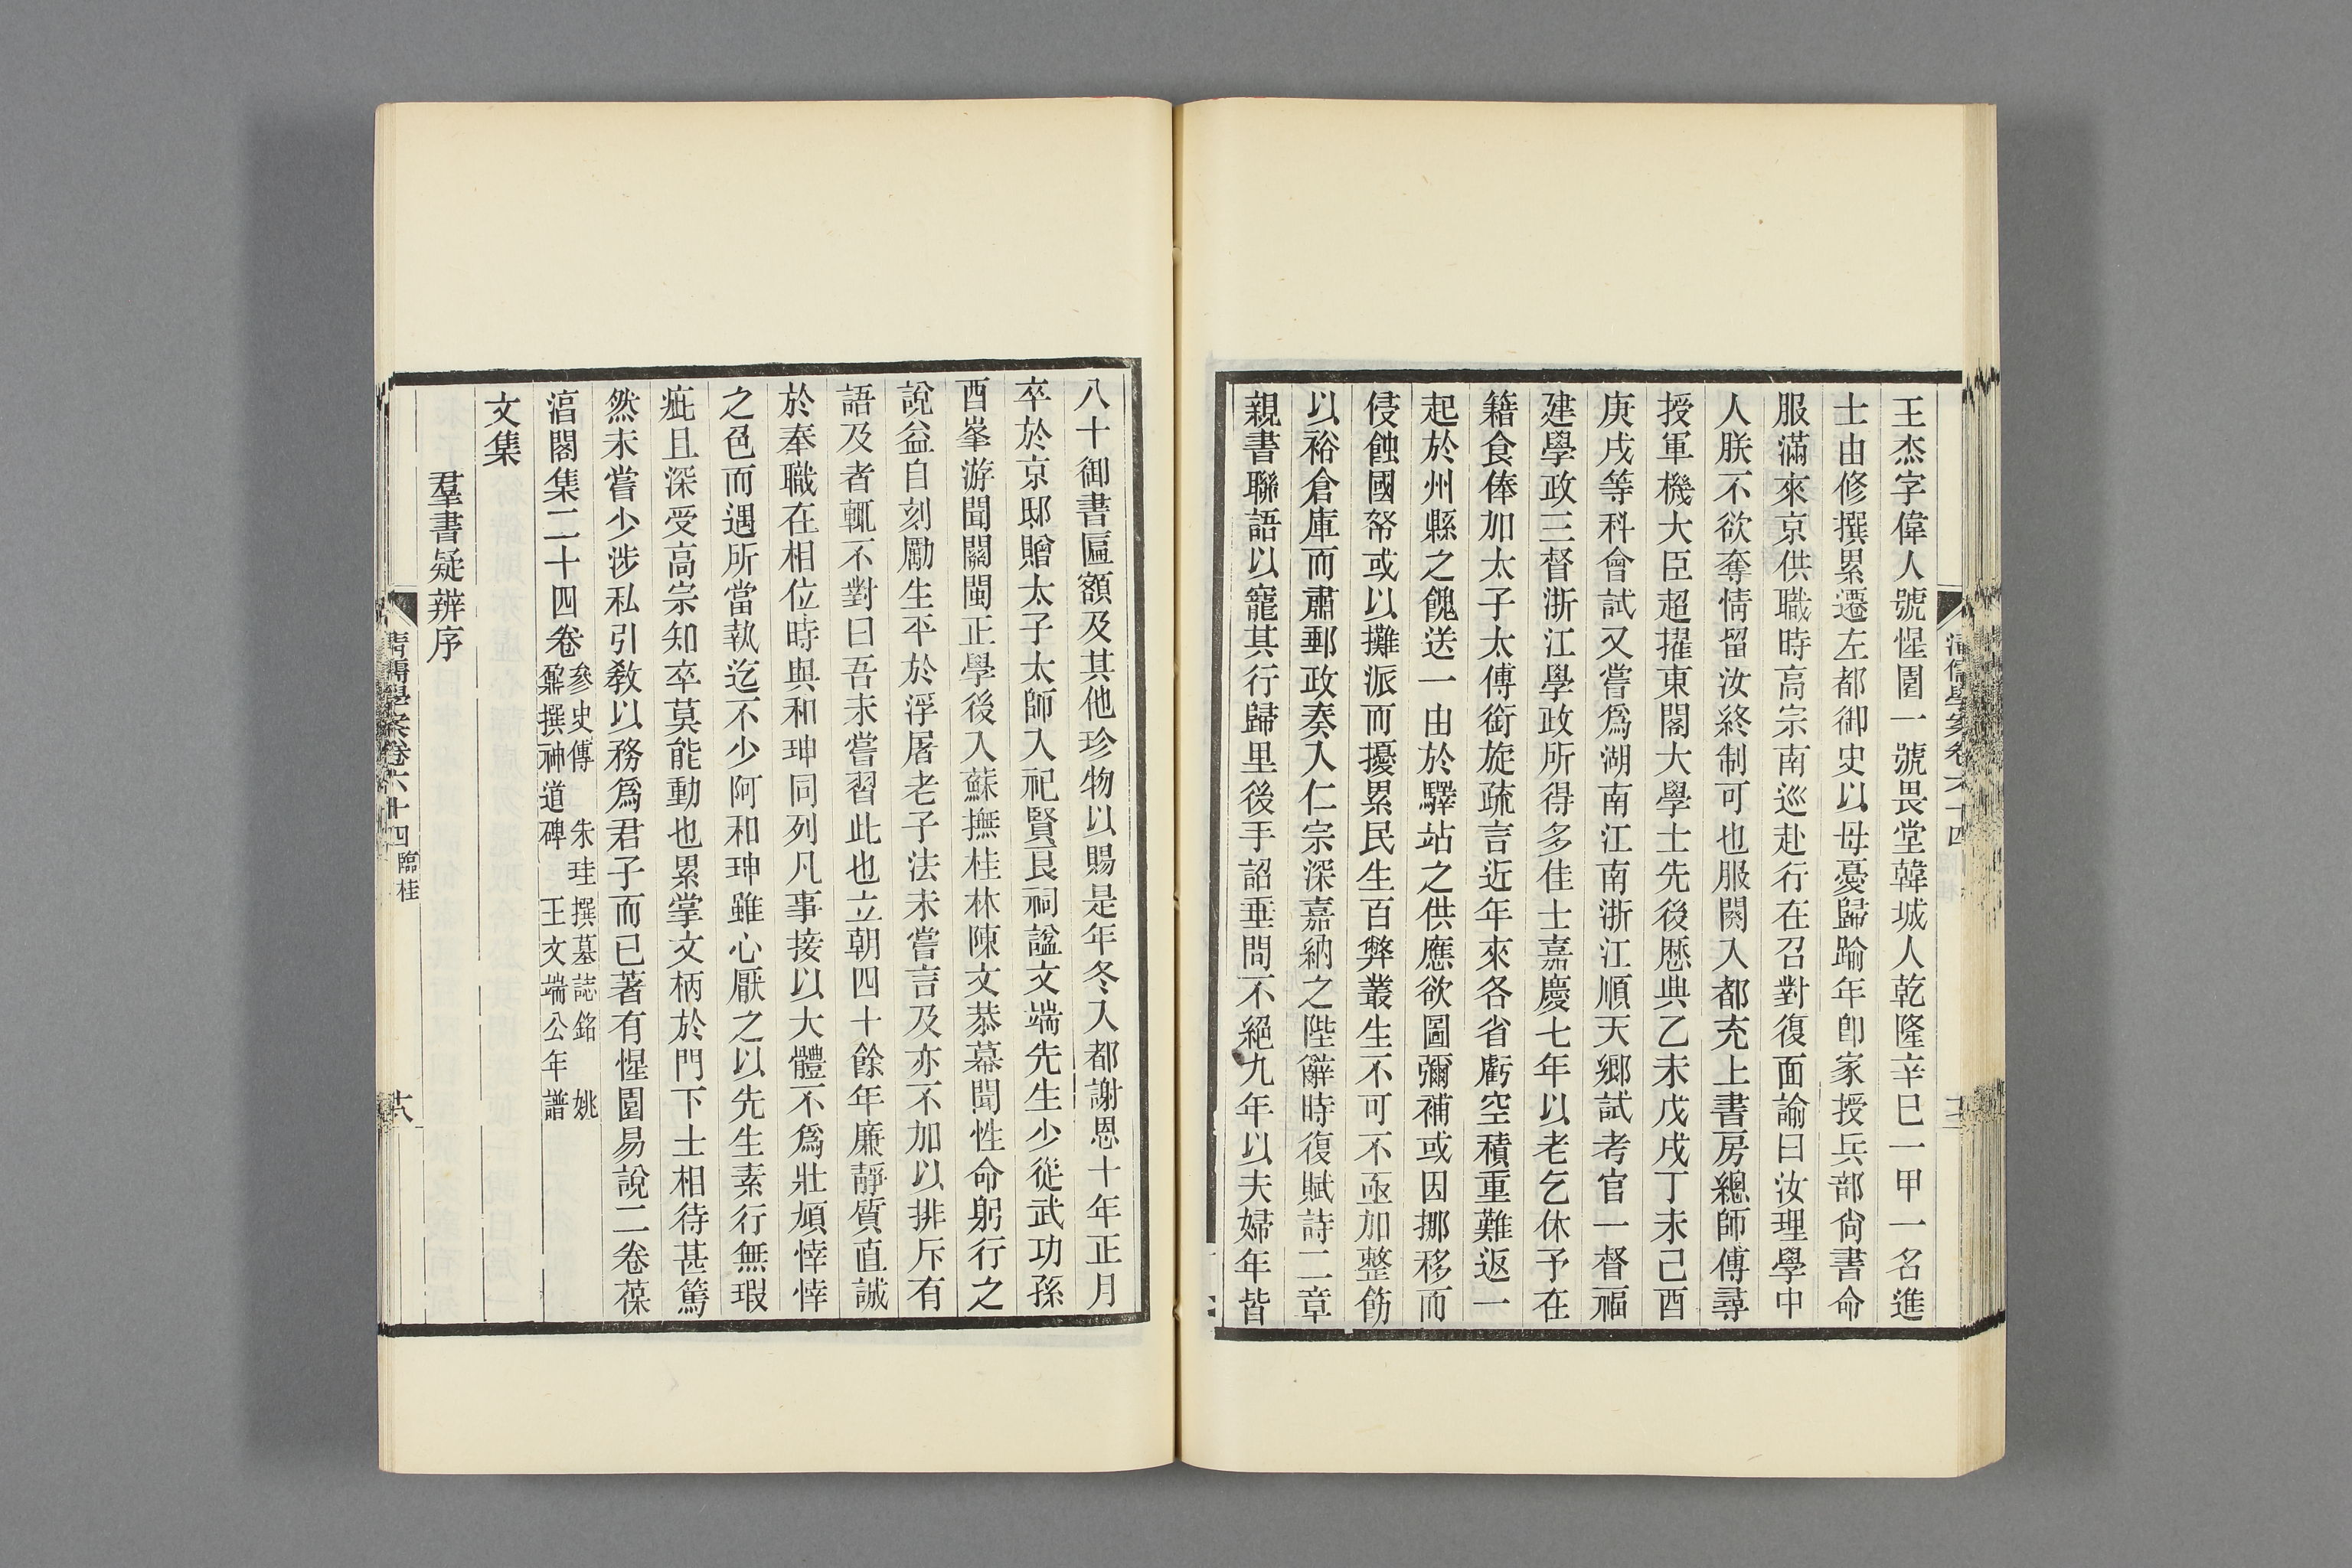 王杰字偉人號惺園一號畏堂韓城人乾隆辛巳一甲一名進
士由修撰累遷左都御史以母憂歸踰年卽家授兵部尙書命
服滿來京供職時高宗南巡赴行在召對復面諭曰汝理學中
人朕不欲奪情留汝終制可也服闋入都充上書房總師傅尋
授軍機大臣超擢東閣大學士先後歷典乙未戊戌丁未己酉
庚戌等科會試又嘗爲湖南江南浙江順天鄉試考官一督福
建學政三督浙江學政所得多佳士嘉慶七年以老乞休予在
籍食俸加太子太傅銜旋疏言近年來各省虧空積重難返一
起於州縣之餽送一由於驛站之供應欲圖彌補或因挪移而
侵蝕國帑或以攤派而擾累民生百弊叢生不可不亟加整飭
以裕倉庫而肅郵政奏入仁宗深嘉納之陛辭時復賦詩二章
親書聯語以寵其行歸里後手詔垂問不絕九年以夫婦年皆
八十御書匾額及其他珍物以賜是年冬入都謝恩十年正月
卒於京邸贈太子太師入祀賢良祠諡文端先生少從武功孫
酉峯游聞關閩正學後入蘇撫桂林陳文恭幕聞性命躬行之
說益自刻勵生平於浮屠老子法未嘗言及亦不加以排斥有
語及者輒不對曰吾未嘗習此也立朝四十餘年廉靜質直誠
於奉職在相位時與和珅同列凡事接以大體不爲壯頄悻悻
之色而遇所當執迄不少阿和珅雖心厭之以先生素行無瑕
疵且深受高宗知卒莫能動也累掌文柄於門下士相待甚篤
然未嘗少涉私引敎以務爲君子而已著有惺園易說二卷葆
淳閣集二十四卷
參史傳 朱珪撰墓誌銘 姚
鼐撰神道碑 王文端公年譜
文集
羣書疑辨序
清儒學案卷六十四 臨桂 十八
清儒學案卷六十四